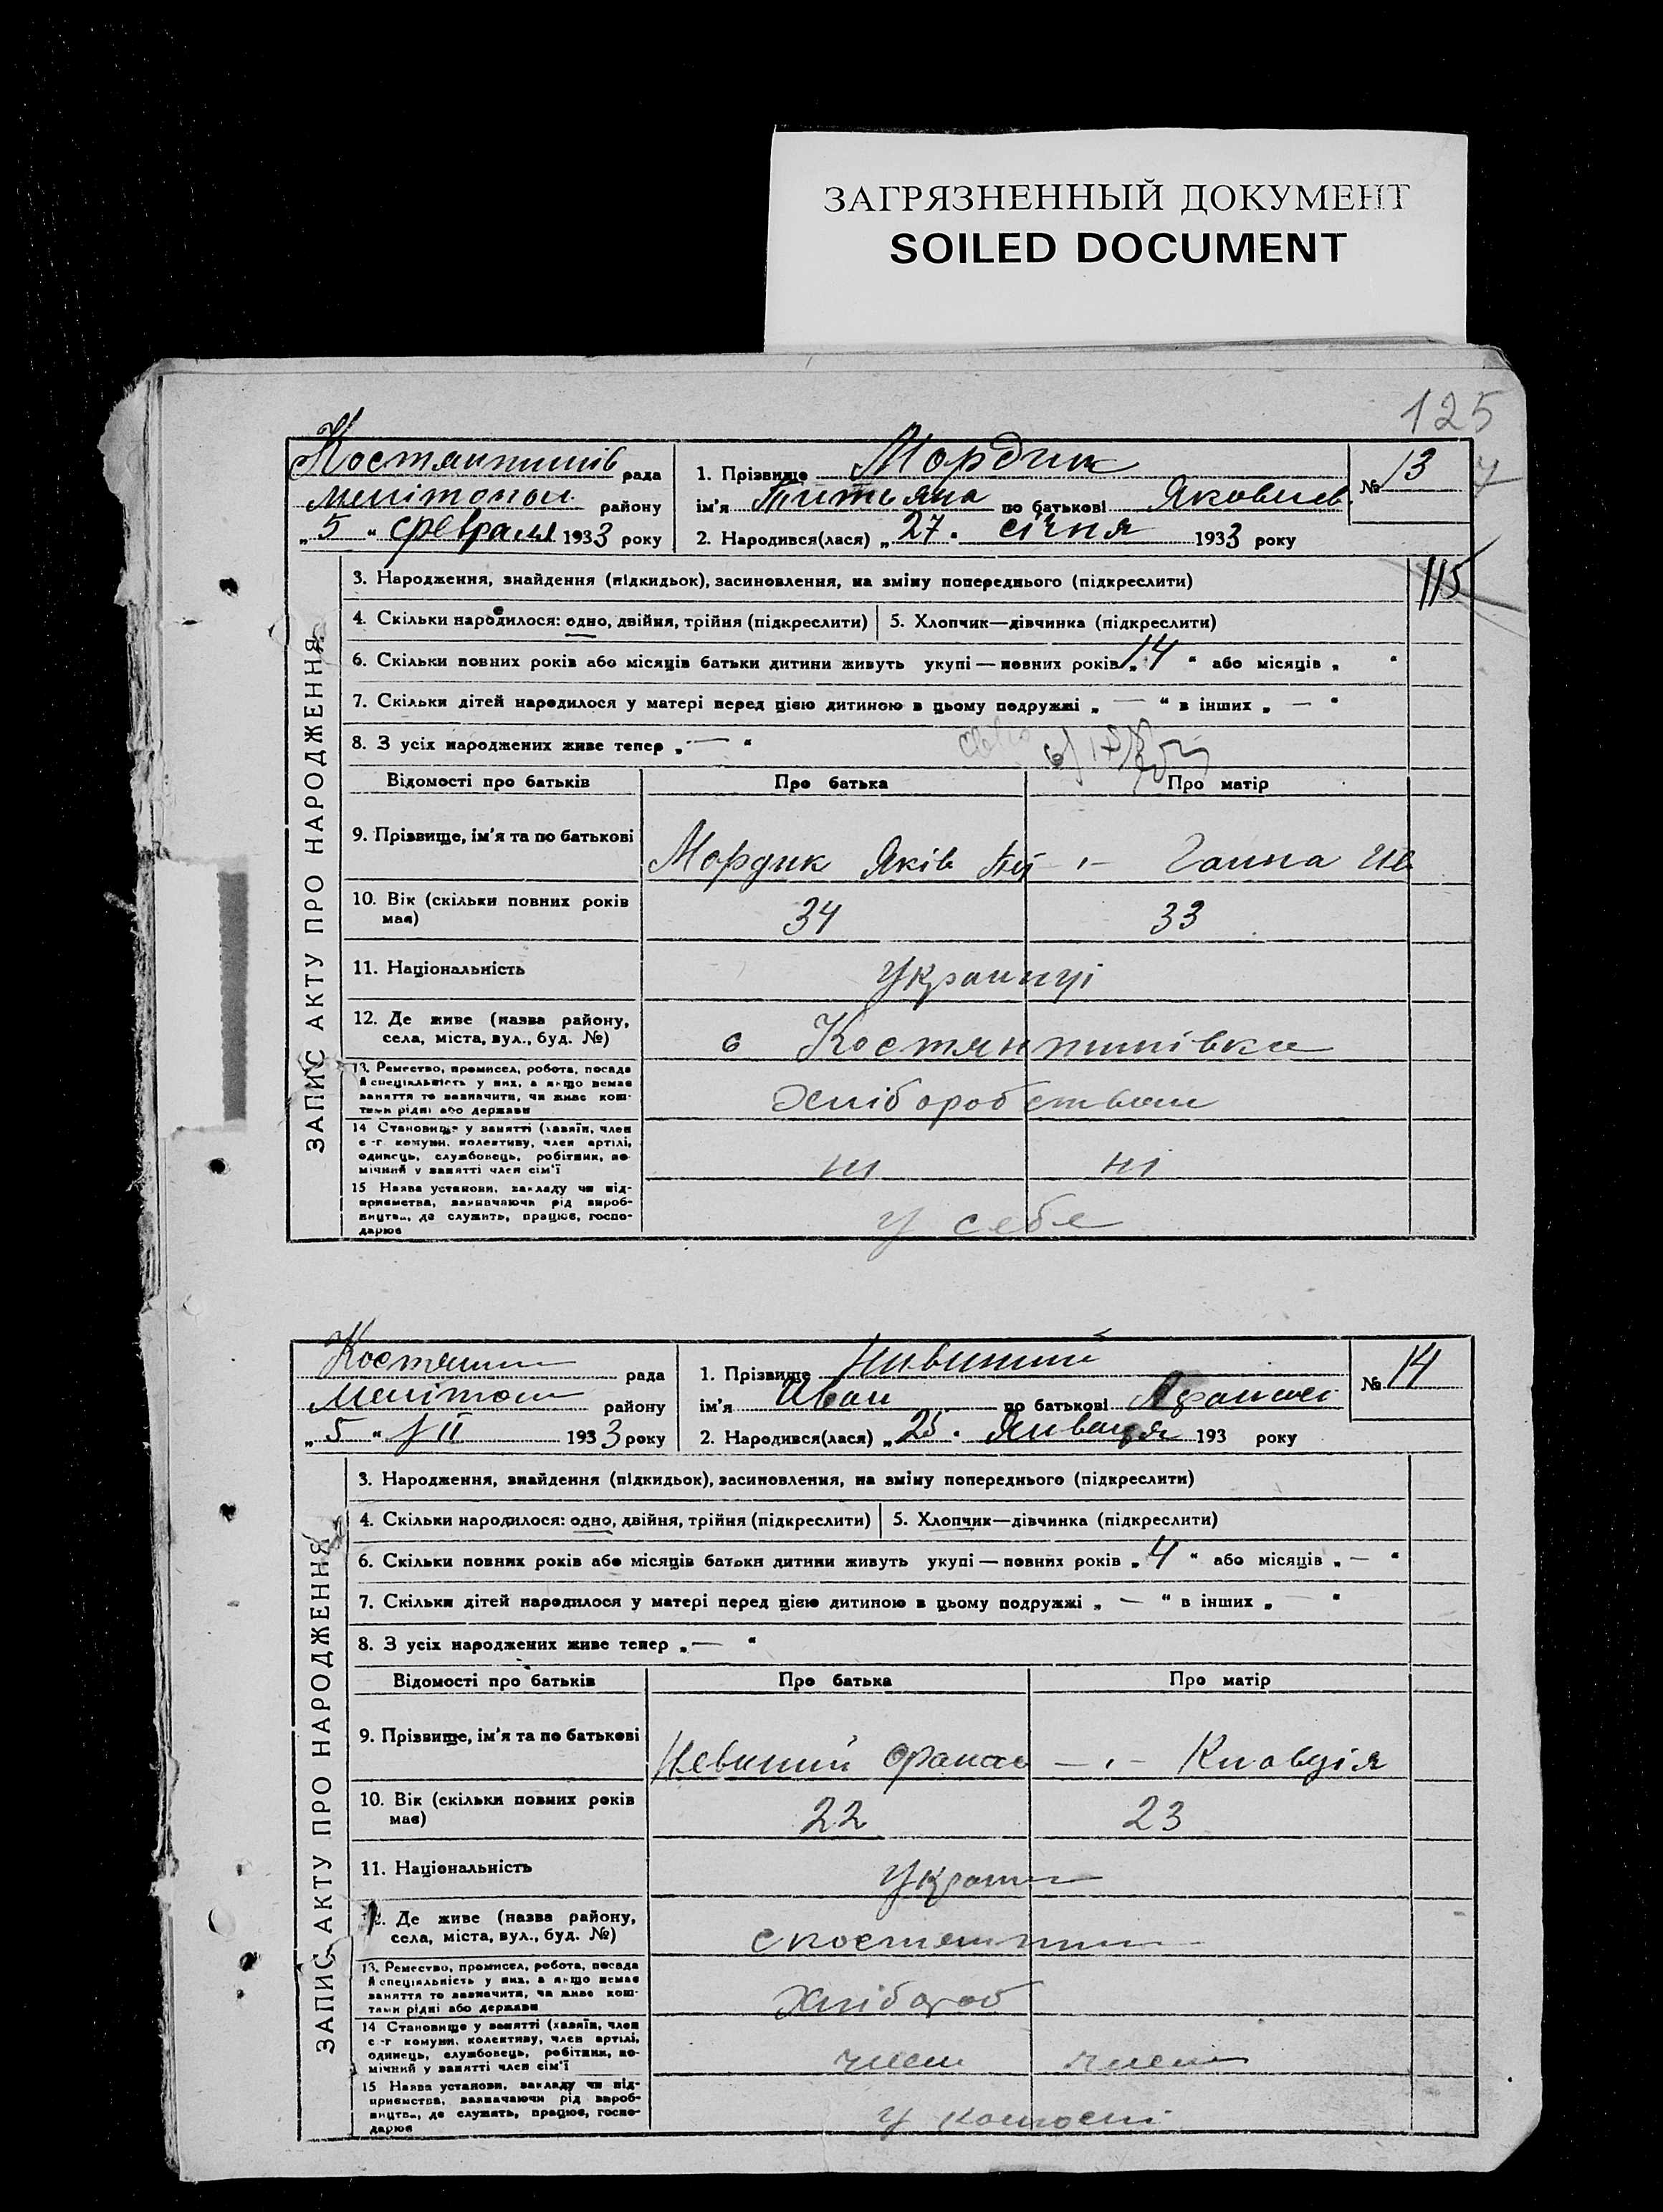 ЗАГРЯЗНЕННЫЙ ДОКУМЕНТ
SOILED DOCUMENT
125
Костянтинів рада
Мелітопол району
„5“ февраля 1933 року
1. Прізвище Мордик
ім'я Титьяна по батькові Яковлев.
2. Народився(лася) „27. січня 1933 року
№ 13
115
ЗАПИС АКТУ ПРО НАРОДЖЕННЯ
3. Народження, знайдення (підкидьок), засиновлення, на зміну попереднього (підкреслити)
4. Скільки народилося: одно, двійня, трійня (підкреслити) 5. Хлопчик—дівчинка (підкреслити)
6. Скільки повних років або місяців батьки дитини живуть укупі — повних років „14“ або місяців „ “
7. Скільки дітей народилося у матері перед цією дитиною в цьому подружжі „—“ в інших „—“
8. З усіх народжених живе тепер „—“
Відомості про батьків Про батька Про матір
9. Прізвище, ім'я та по батькові
Мордик Яків —"— Ганна Ив
10. Вік (скільки повних років
має)
34 33
11. Національність
Українці
12. Де живе (назва району,
села, міста, вул., буд. №)
с Костянтинівка
13. Ремество, промисел, робота, посада
й спеціяльність у них, а якщо немає
заняття то зазначити, чи живе кош-
тами рідні або держави
Хліборобством
14 Становище у занятті (хазяїн, член
с-г комуни, колективу, член артілі,
одинець, службовець, робітник, по-
мічний у занятті член сім'ї
ні ні
15 Назва установи, закладу чи під-
приємства, зазначаючи рід вироб-
ництва, де служить, працює, госпо-
дарює
у себе
Костянтин рада
Мелітоп району
„5“ /II 1933 року
1. Прізвище Нивинний
ім'я Иван по батькові Афанасі
2. Народився(лася) „25. Январця 193 року
№ 14
ЗАПИС АКТУ ПРО НАРОДЖЕННЯ
3. Народження, знайдення (підкидьок), засиновлення, на зміну попереднього (підкреслити)
4. Скільки народилося: одно, двійня, трійня (підкреслити) 5. Хлопчик—дівчинка (підкреслити)
6. Скільки повних років або місяців батьки дитини живуть укупі — повних років „4“ або місяців „—“
7. Скільки дітей народилося у матері перед цією дитиною в цьому подружжі „—“ в інших „ “
8. З усіх народжених живе тепер „—“
Відомості про батьків Про батька Про матір
9. Прізвище, ім'я та по батькові
Невинний Офанас —"— Клавдія
10. Вік (скільки повних років
має)
22 23
11. Національність
Україн
12. Де живе (назва району,
села, міста, вул., буд. №)
с Костянтин
13. Ремество, промисел, робота, посада
й спеціяльність у них, а якщо немає
заняття то зазначити, чи живе кош-
тами рідні або держави
Хлібороб
14 Становище у занятті (хазяїн, член
с-г комуни, колективу, член артілі,
одинець, службовець, робітник, по-
мічний у занятті член сім'ї
член член
15 Назва установи, закладу чи під-
приємства, зазначаючи рід вироб-
ництва, де служить, працює, госпо-
дарює
у колгоспі